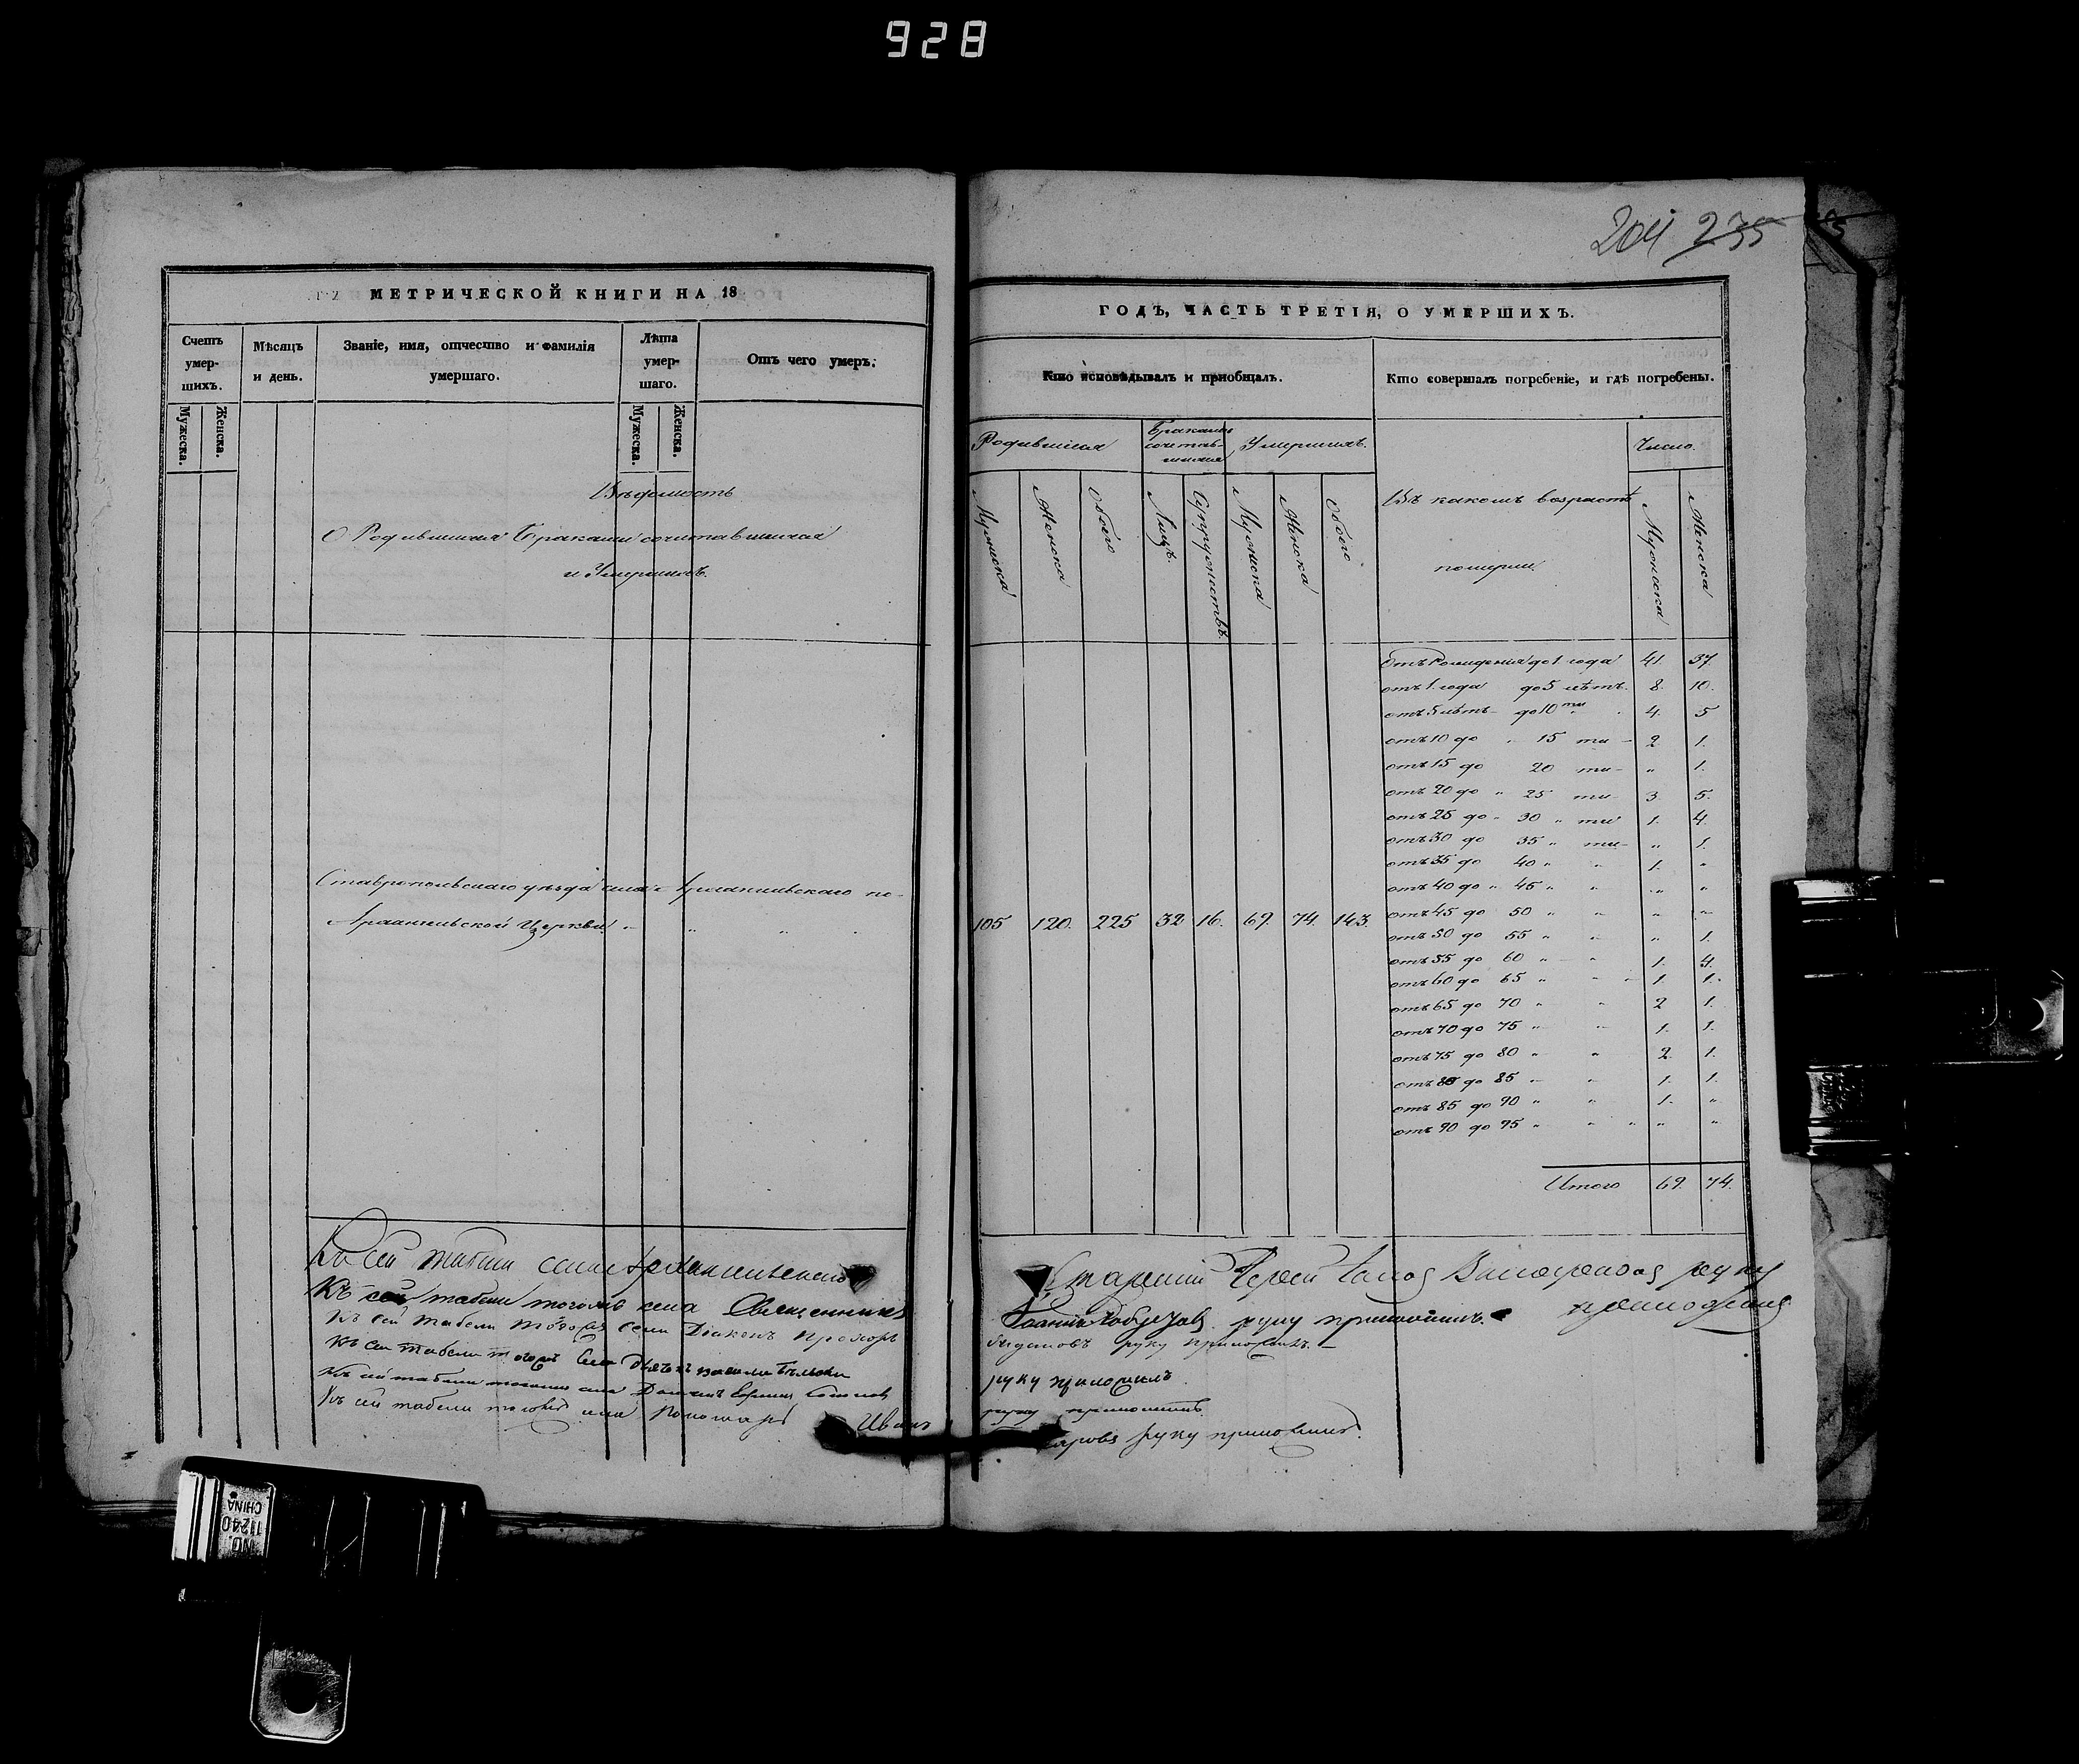 928
204 235
МЕТРИЧЕСКОЙ КНИГИ НА 18
Счетъ умер-шихъ.
Мужеска.
Женска.
Мѣсяцъ и день.
Званіе, имя, отчество и фамилія умершаго.
Лѣта умер-шаго.
Мужеска.
Женска.
Отъ чего умеръ.
Вѣдомость
О Родившихся Браками сочетавшихся
и Умершихъ.
Ставропольскаго уѣзда села Архангельскаго по
Архангельской Церкви
ГОДЪ, ЧАСТЬ ТРЕТІЯ, О УМЕРШИХЪ.
Кто исповѣдывалъ и пріобщалъ.
Кто совершалъ погребеніе, и гдѣ погребены.
Родившихся
Мужеска
Женска
Обоего
Браками сочетав-шихся
Лицъ.
Супружествъ.
Умершихъ.
Мужеска
Женска
Обоего
Въ какомъ возрастѣ
померли.
Число.
Мужеска
Женска
105 120. 225 32 16. 69. 74. 143.
отъ Рожденія до 1 года 41. 37.
отъ 1. года до 5 лѣтъ. 8. 10.
отъ 5 лѣтъ до 10 ти 4. 5
отъ 10 до „ 15 ти 2 1.
отъ 15 до 20 ти „ 1.
отъ 20 до „ 25 ти 3 5.
отъ 25 до „ 30 „ ти 1. 4.
отъ 30 до 35 „ ти „ 1.
отъ 35 до 40 „ „ 1. „
отъ 40 до „ 45 „ „ „ „
отъ 45 до 50 „ „ „ „
отъ 50 до 55 „ „ „ 1.
отъ 55 до 60 „ „ 1. 4.
отъ 60 до 65 „ „ 1. 1.
отъ 65 до 70 „ „ 2 1.
отъ 70 до 75 „ „ 1. 1.
отъ 75 до 80 „ „ 2. 1.
отъ 80 до 85 „ „ 1. 1.
отъ 85 до 90 „ „ 1. „
отъ 90 до 95 „ „ „ „
Итого 69. 74.
Къ сей табели села Архангельскаго Старшій Іерей руку приложилъ
Къ сей табели тогожъ села Священникъ Іоаннъ руку приложилъ.
Къ сей табели тогожъ села Діаконъ Прохоръ руку приложилъ.
Къ сей табели тогожъ села Дьячекъ руку приложилъ
Къ сей табели тогожъ села руку приложилъ
Къ сей табели тогожъ села Пономарь Иванъ руку приложилъ.
NO. 11240 CHINA